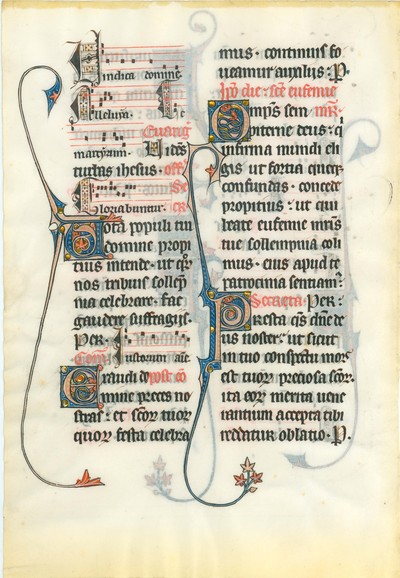 Vindica domine.
Alleluya. Te
Euang
martyrum. Videns
turbas ihesus. off.
Se
Gloriabuntur. cr.
Uota populi tui
domine propi
tius intende. ut quor
nos tribuis sollep
nia celebrare. fac
gaudere suffragiis.
Per. Com. Iustorum aie.
Exaudi do post co
mine preces no
stras. et scor tuor
quor festa celebra
mus. continuis fo
ueamur auxiliis. P.
Ipo die. sce eufemie
Omps sem mr.
piterne deus. q
infirma mundi eli
gis ut fortia queq
confundas. concede
propitius. ut qui
beate eufemie mris
tue sollempnia coli
mus. eius apud te
patrocinia sentiam.
Secreta. Per.
Presta qs dne de
us noster. ut sicut
in tuo conspectu mors
est tuor preciosa scor.
ita eor merita uene
rantium accepta tibi
reddatur oblatio. P.